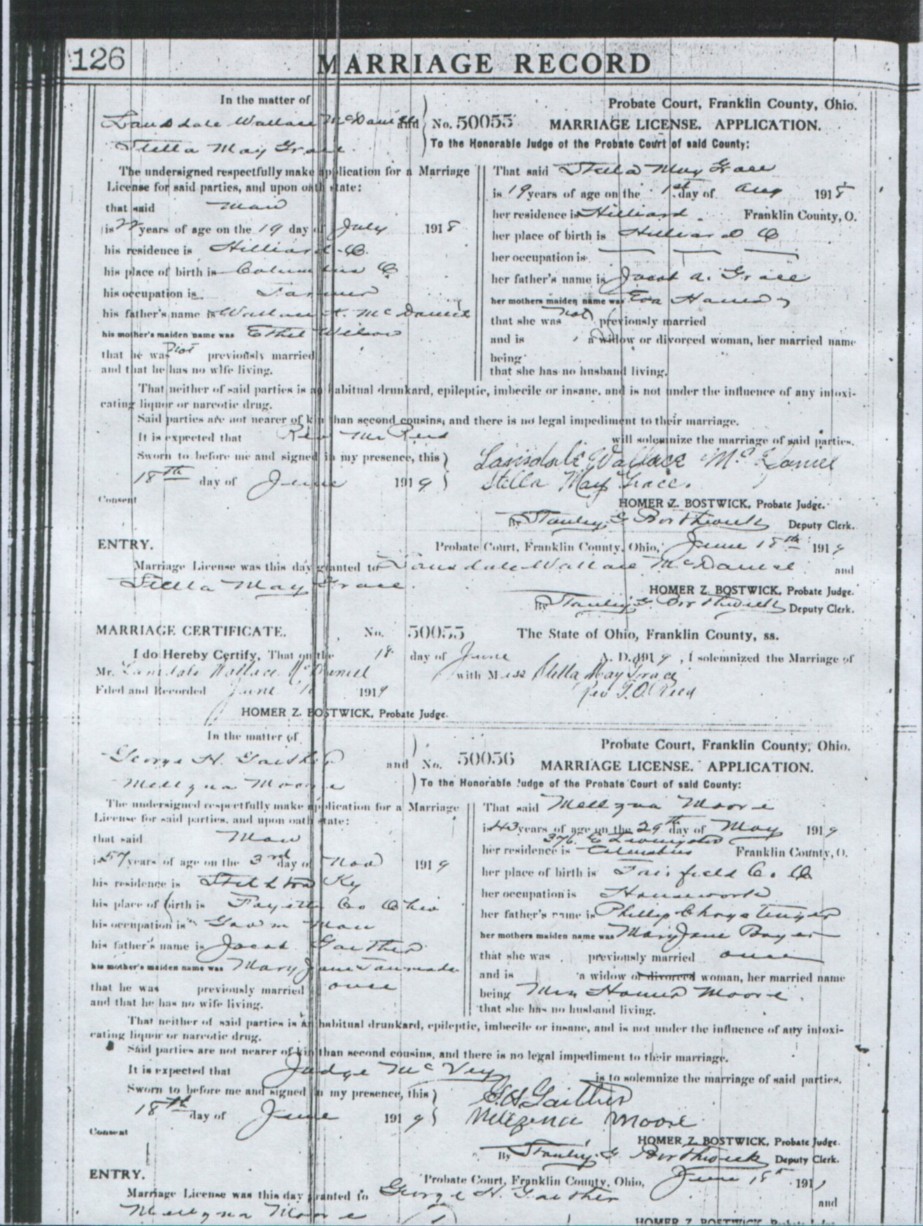 126 MARRIAGE RECORD
In the matter of
Lansdale Wallace McDaniel and
Stella May Grace.
No. 50055
Probate Court, Franklin County, Ohio.
MARRIAGE LICENSE. APPLICATION.
To the Honorable Judge of the Probate Court of said County:
The undersigned respectfully make application for a Marriage
License for said parties, and upon oath state:
that said Man
is years of age on the 19 day of July 1918
his residence is Hilliard O.
his place of birth is Columbus O
his occupation is Farmer
his father's name is Wallace H. McDaniel
his mother's maiden name was Ethel Wilson
that he was not previously married
and that he has no wife living.
That said Stella May Grace
is 19 years of age on the 1st day of Aug 1918
her residence is Hilliard. Franklin County, O.
her place of birth is Hilliard O
her occupation is
her father's name is Jacob A. Grace
her mothers maiden name was Eva
that she was not previously married
and is a widow or divorced woman, her married name
being
that she has no husband living.
That neither of said parties is an habitual drunkard, epileptic, imbecile or insane, and is not under the influence of any intoxi-
cating liquor or narcotic drug.
Said parties are not nearer of kin than second cousins, and there is no legal impediment to their marriage.
It is expected that Rev Mr Reed will solemnize the marriage of said parties.
Sworn to before me and signed in my presence, this
18th day of June 1919
Lansdale Wallace McDaniel
Stella May Grace.
Consent
HOMER Z. BOSTWICK, Probate Judge.
By Stanley G Borthwick Deputy Clerk.
ENTRY.
Probate Court, Franklin County, Ohio, June 18th 1919
Marriage License was this day granted to Lansdale Wallace McDaniel and
Stella May Grace
HOMER Z. BOSTWICK, Probate Judge.
By Stanley G Borthwick Deputy Clerk.
MARRIAGE CERTIFICATE. No. 50055 The State of Ohio, Franklin County, ss.
I do Hereby Certify, That on the 18 day of June A. D. 1919, I solemnized the Marriage of
Mr. Lansdale Wallace McDaniel with Miss Stella May Grace
Filed and Recorded June 1919
HOMER Z. BOSTWICK, Probate Judge.
In the matter of
George H. Gaither and
Mellzna Moore
No. 50056
Probate Court, Franklin County, Ohio.
MARRIAGE LICENSE. APPLICATION.
To the Honorable Judge of the Probate Court of said County:
The undersigned respectfully make application for a Marriage
License for said parties, and upon oath state:
that said Man
is 57 years of age on the 3rd day of Nov 1919
his residence is Ky
his place of birth is Fayette Co Ohio
his occupation is Man
his father's name is Jacob Gaither
his mother's maiden name was Mary Jane
that he was previously married once
and that he has no wife living.
That said Mellzna Moore
is 43 years of age on the 29th day of May 1919
376 E Livingston
her residence is Columbus Franklin County, O.
her place of birth is Fairfield Co. O
her occupation is Housework
her father's name is Phillip
her mothers maiden name was Mary Jane
that she was previously married once
and is a widow or divorced woman, her married name
being Mrs Homer Moore.
that she has no husband living.
That neither of said parties is an habitual drunkard, epileptic, imbecile or insane, and is not under the influence of any intoxi-
cating liquor or narcotic drug.
Said parties are not nearer of kin than second cousins, and there is no legal impediment to their marriage.
It is expected that Judge McVey is to solemnize the marriage of said parties.
Sworn to before me and signed in my presence, this
18th day of June 1919
G.H. Gaither
Moore
Consent
HOMER Z. BOSTWICK, Probate Judge.
By Stanley G Borthwick Deputy Clerk.
ENTRY.
Probate Court, Franklin County, Ohio, June 18th 191
Marriage License was this day granted to George H. Gaither and
Mellzna Moore
HOMER Z. BOSTWICK, Probate Judge.